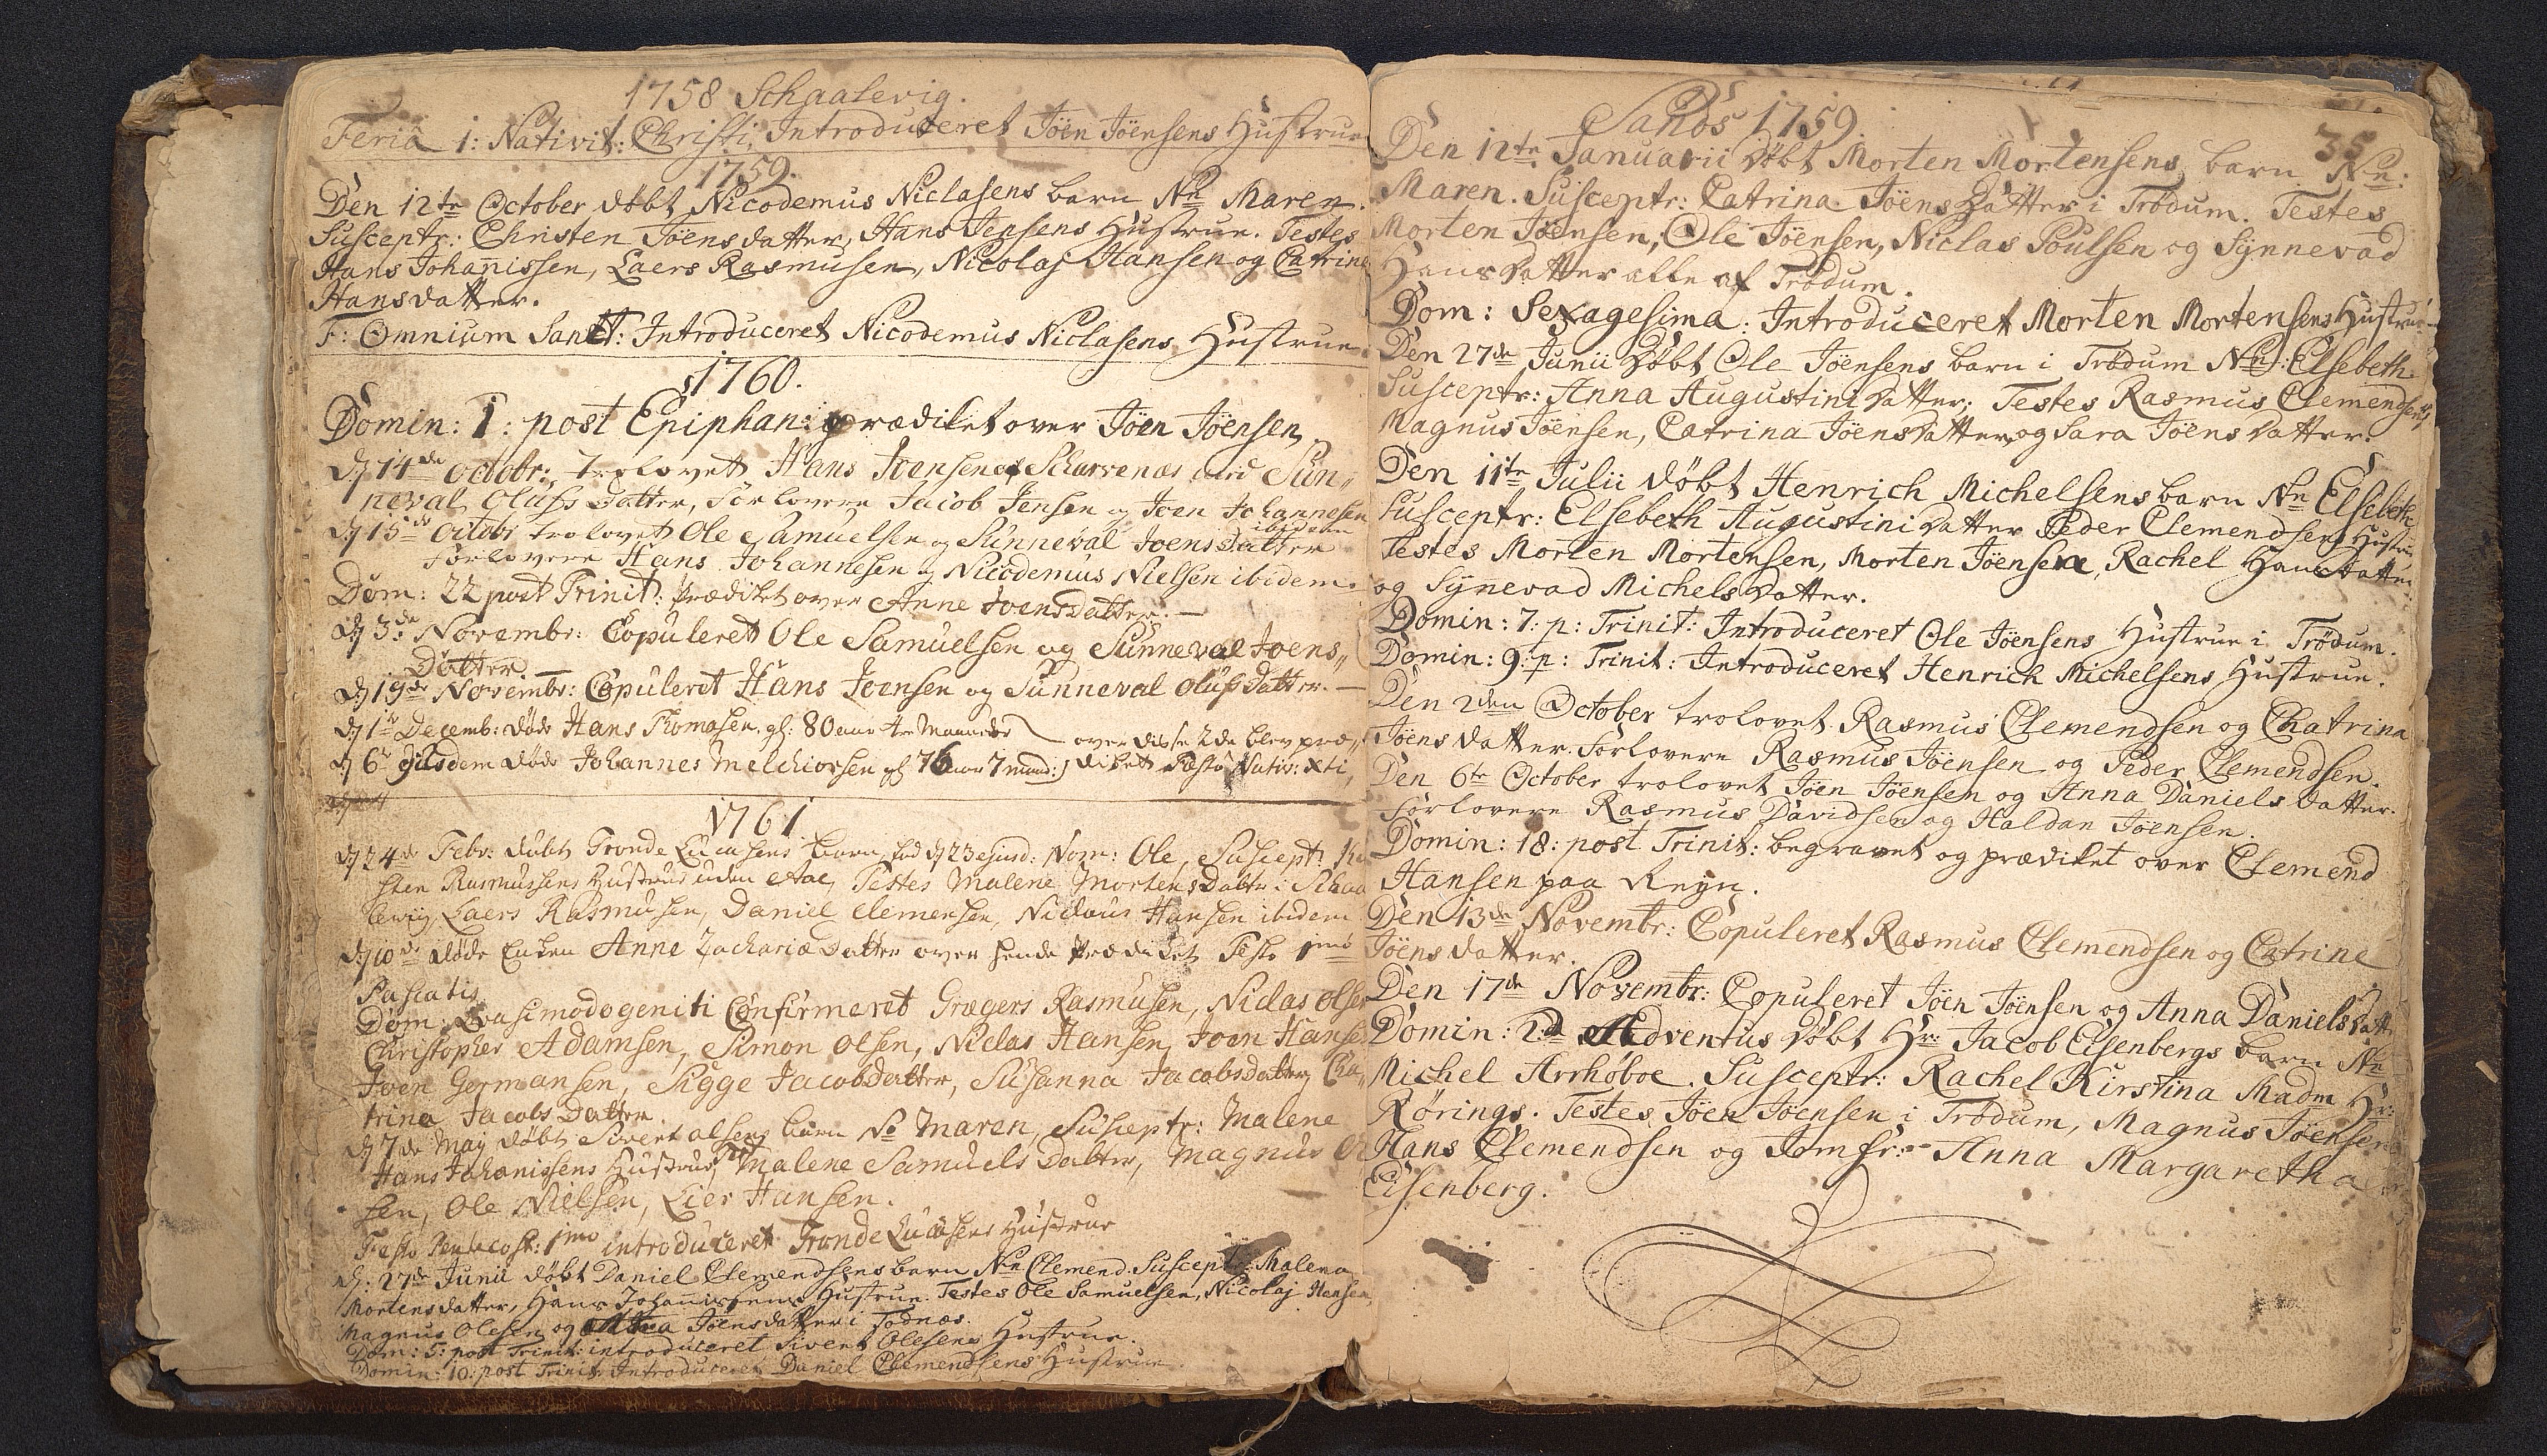 1758 Schaalevig.
Feria 1: Nativit: Christi, Introduceret Jöen Jöensens Hustrue
1759.
Den 12te October döbt Nicodemus Niclasens barn Nn Maren.
Susceptr: Christen Jöensdatter, Hans Jensens Hustrue. Testes
Hans Johannissen, Laers Rasmusen, Nicolaj Hansen og Catrine
Hansdatter.
F: Omnium Sanct: Introduceret Nicodemus Niclasens Hustrue
1760.
Domin: 1: post Epiphan: prædiket over Jöen Jöensen,
dj 14de octobr: trolovet Hans Joensen af Skarvenæs Sün„
neval Olufs Datter, Forlovere Jacob Jensen og Joen Johannesen
ibidem
dj 15de octobr trolovet Ole Samuelsen og Sünneval Joensdatter
Forlovere Hans Johannesen og Nicodemus Nielsen ibidem.
Dom: 22 post Trinit: Prædiket over Anne Joensdatter. —
dj 3de Novembr: Copuleret Ole Samuelsen og Sünneval Joens„
Datter —
dj 19de Novembr: Copuleret Hans Joensen og Sünneval Olufs Datter. —
dj 1te Decemb: döde Hans Thomasen. gl: 80 aar 4re Maaneder
over disse 2de blev præ„
dj 6te Ejusdem döde Johannes Melchiorsen gl 76 aar 7 maad:
diket Festo Nativ: Xti,
1761
dj 24de Febr: döbt Tronde Lucasens barn, fod dj 23 ejusd: Nom: Ole, Suscept:
sten Rasmussens Hustrue uden Aae, Testes Malene Mortens Datter i Schaa
levig, Laers Rasmusen, Daniel Clemensen, Niclaus Hansen ibidem
dj 10de döde Enken Anne Zachariæ Datter over hende Prædiket Festo 1mo
Paschatis
Dom: Quasimodogeniti Confirmeret Grægers Rasmusen, Niclas Olsen
Christopher Adamsen, Simon Olsen, Niclas Hansen, Joen Hansen
Joen Germansen, Sigge Jacobsdatter, Susanna Jacobsdatter, Cha„
trina Jacobs Datter.
dj 7de Maij döbt Sivert Olsens barn No Maren, Susceptr: Malene
Hans Johanissens Hustrue, Malene Samuels Datter, Magnus
sen, Ole Nielsen, Lier Hansen.
Festo Pentecost: 1mo introduceret Tronde Lucasens Hustrue
d: 27de Junii döbt Daniel Clemendsens barn Nn Clemend. Susceptr: Malena
Mortensdatter, Hans Johannissens Hustrue. Testes Ole Samuelsen, Nicolaj Hansen,
Magnus Olesen og Jöensdatter i Todnæs.
Dom: 5: post Trinit: introduceret Sivert Olesens Hustrue.
Domin: 10: post Trinit: Introduceret Daniel Clemendsens Hustrue.
Sandö 1759
35
Den 12te Januarii döbt Morten Mortensens barn Nn:
Maren. Susceptr: Catrina Jöens Datter i Trödum. Testes
Morten Jöensen, Ole Jöensen, Niclas Poulsen og Synnevad
Hans Datter alle af Trödum.
Dom: Sexagesima: Introduceret Morten Mortensens Hustrue
Den 27de Junii döbt Ole Jöensens barn i Trödum Nn: Elsebeth.
Susceptr: Anna Augustini Datter; Testes Rasmus Clemendsen,
Magnus Jöensen, Catrina Jöens Datter, og Sara Jöens Datter.
Den 11te Julii döbt Henrich Michelsens barn Nn Elsebeth
Susceptr: Elsebeth Augustini Datter Peder Clemendsens Hustrue
Testes Morten Mortensen, Morten Jöensen, Rachel Hansdatter
og Synevad Michels Datter.
Domin: 7: p: Trinit: Introduceret Ole Jöensens Hustrue i Trödum.
Domin: 9: p: Trinit: Introduceret Henrich Michelsens Hustrue.
Den 2den October trolovet Rasmus Clemendsen og Chatrina
Jöens datter. Forlovere Rasmus Jöensen og Peder Clemendsen.
Den 6te October trolovet Jöen Jöensen og Anna Daniels datter.
Forlovere Rasmus Davidsen og Haldan Jöensen.
Domin: 18: post Trinit: begravet og prædiket over Clemend
Hansen paa Reyn.
Den 13de Novembr: Copuleret Rasmus Clemendsen og Catrine
Jöens datter.
Den 17de Novembr: Copuleret Jöen Jöensen og Anna Daniels Datt
Domin: 2da Adventus döbt Hr: Jacob Eisenbergs barn Nn
Michel Arrhöboe. Susceptr: Rachel Kirstina Madm Hr:
Rörings. Testes Jöen Jöensen i Trödum, Magnus Jöensen
Hans Clemendsen og Jomfr: Anna Margaretha
Eisenberg.